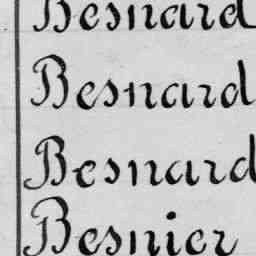 Besnard
Besnard
Besnard
Besnier